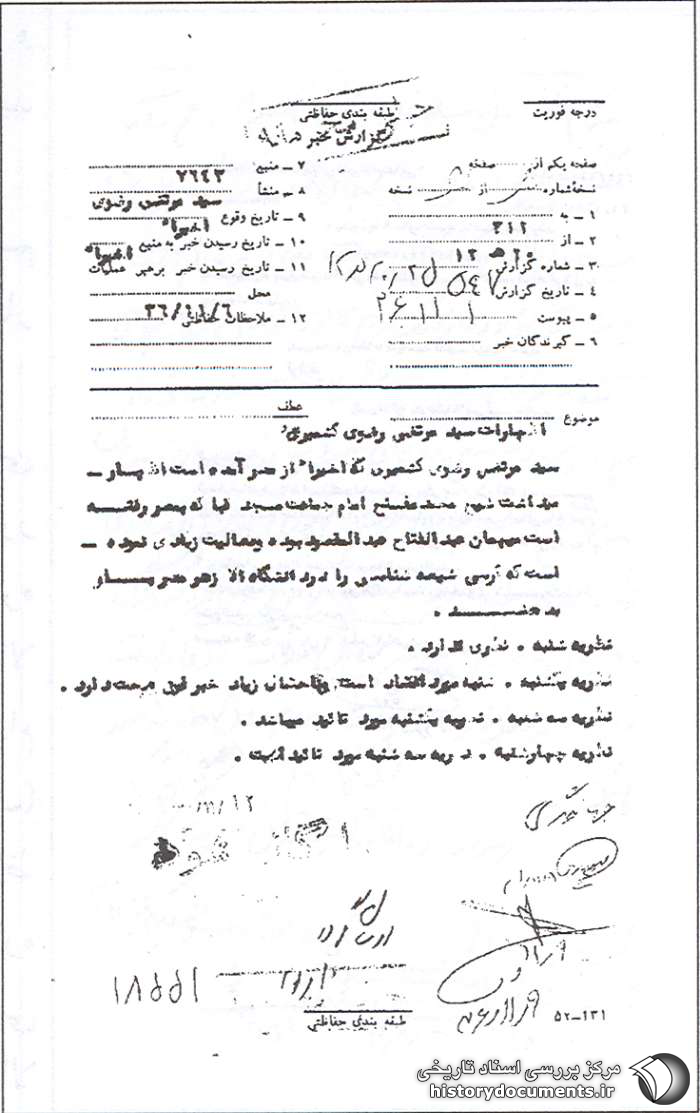 درجه فوریت
طبقه بندی حفاظتی
گزارش خبر
صفحه یکم از صفحه
نسخه شماره از نسخه
۱ ـ به
۲ ـ از ۳۱۲
۳ ـ شماره گزارش
۴ ـ تاریخ گزارش
۵ ـ پیوست
۶ ـ گیرندگان خبر
۷ ـ منبع ۷۶۴۳
۸ ـ منشأ سید مرتضی رضوی
۹ ـ تاریخ وقوع اخیرا"
۱۰ ـ تاریخ رسیدن خبر به منبع اخیرا"
۱۱ ـ تاریخ رسیدن خبر برهبر عملیات
محل
۱۲ ـ ملاحظات حفاظتی ۳۶/۱۱/۶
عطف
موضوع اظهارات سید مرتضی رضوی کشمیری
سید مرتضی رضوی کشمیری که اخیرا" از مصر آمده است اظهار ـ
میداشت شیخ محمد مفتح امام جماعت مسجد قبا که بمصر رفتـه
است میهمان عبدالفتاح عبدالمقصود بوده و فعالیت زیادی نموده ـ
است که کرسی شیعه شناسی را در دانشگاه الازهر مصر بـــاو
بدهنـــد .
نظریه شنبه . نظری ندارد .
نظریه یکشنبه . شنبه مورد اعتماد است باحتمال زیاد خبر فوق صحت دارد .
نظریه سه شنبه . نظریه یکشنبه مورد تائید میباشد .
نظریه چهارشنبه . نظریه سه شنبه مورد تائید است .
۱۸۵۵۱
طبقه بندی حفاظتی
۵۲ــ۱۳۱
مرکز بررسی اسناد تاریخی
historydocuments.ir